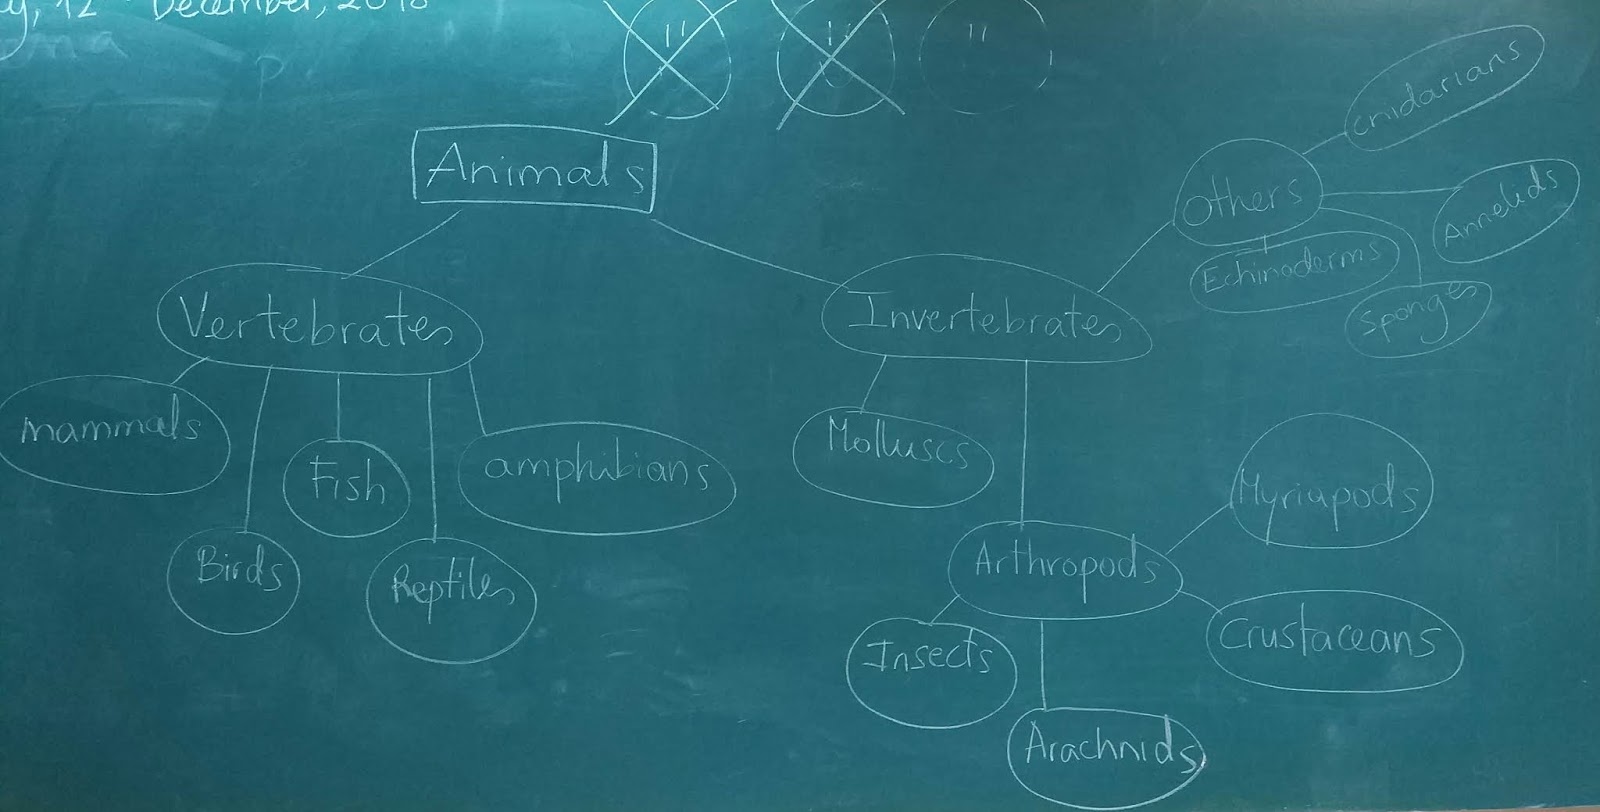 12 December, 2018
Animals
Vertebrates
Invertebrates
Others
cnidarians
Annelids
Echinoderms
Sponges
mammals
Birds
Fish
Reptiles
amphibians
Molluscs
Arthropods
Myriapods
Crustaceans
Insects
Arachnids